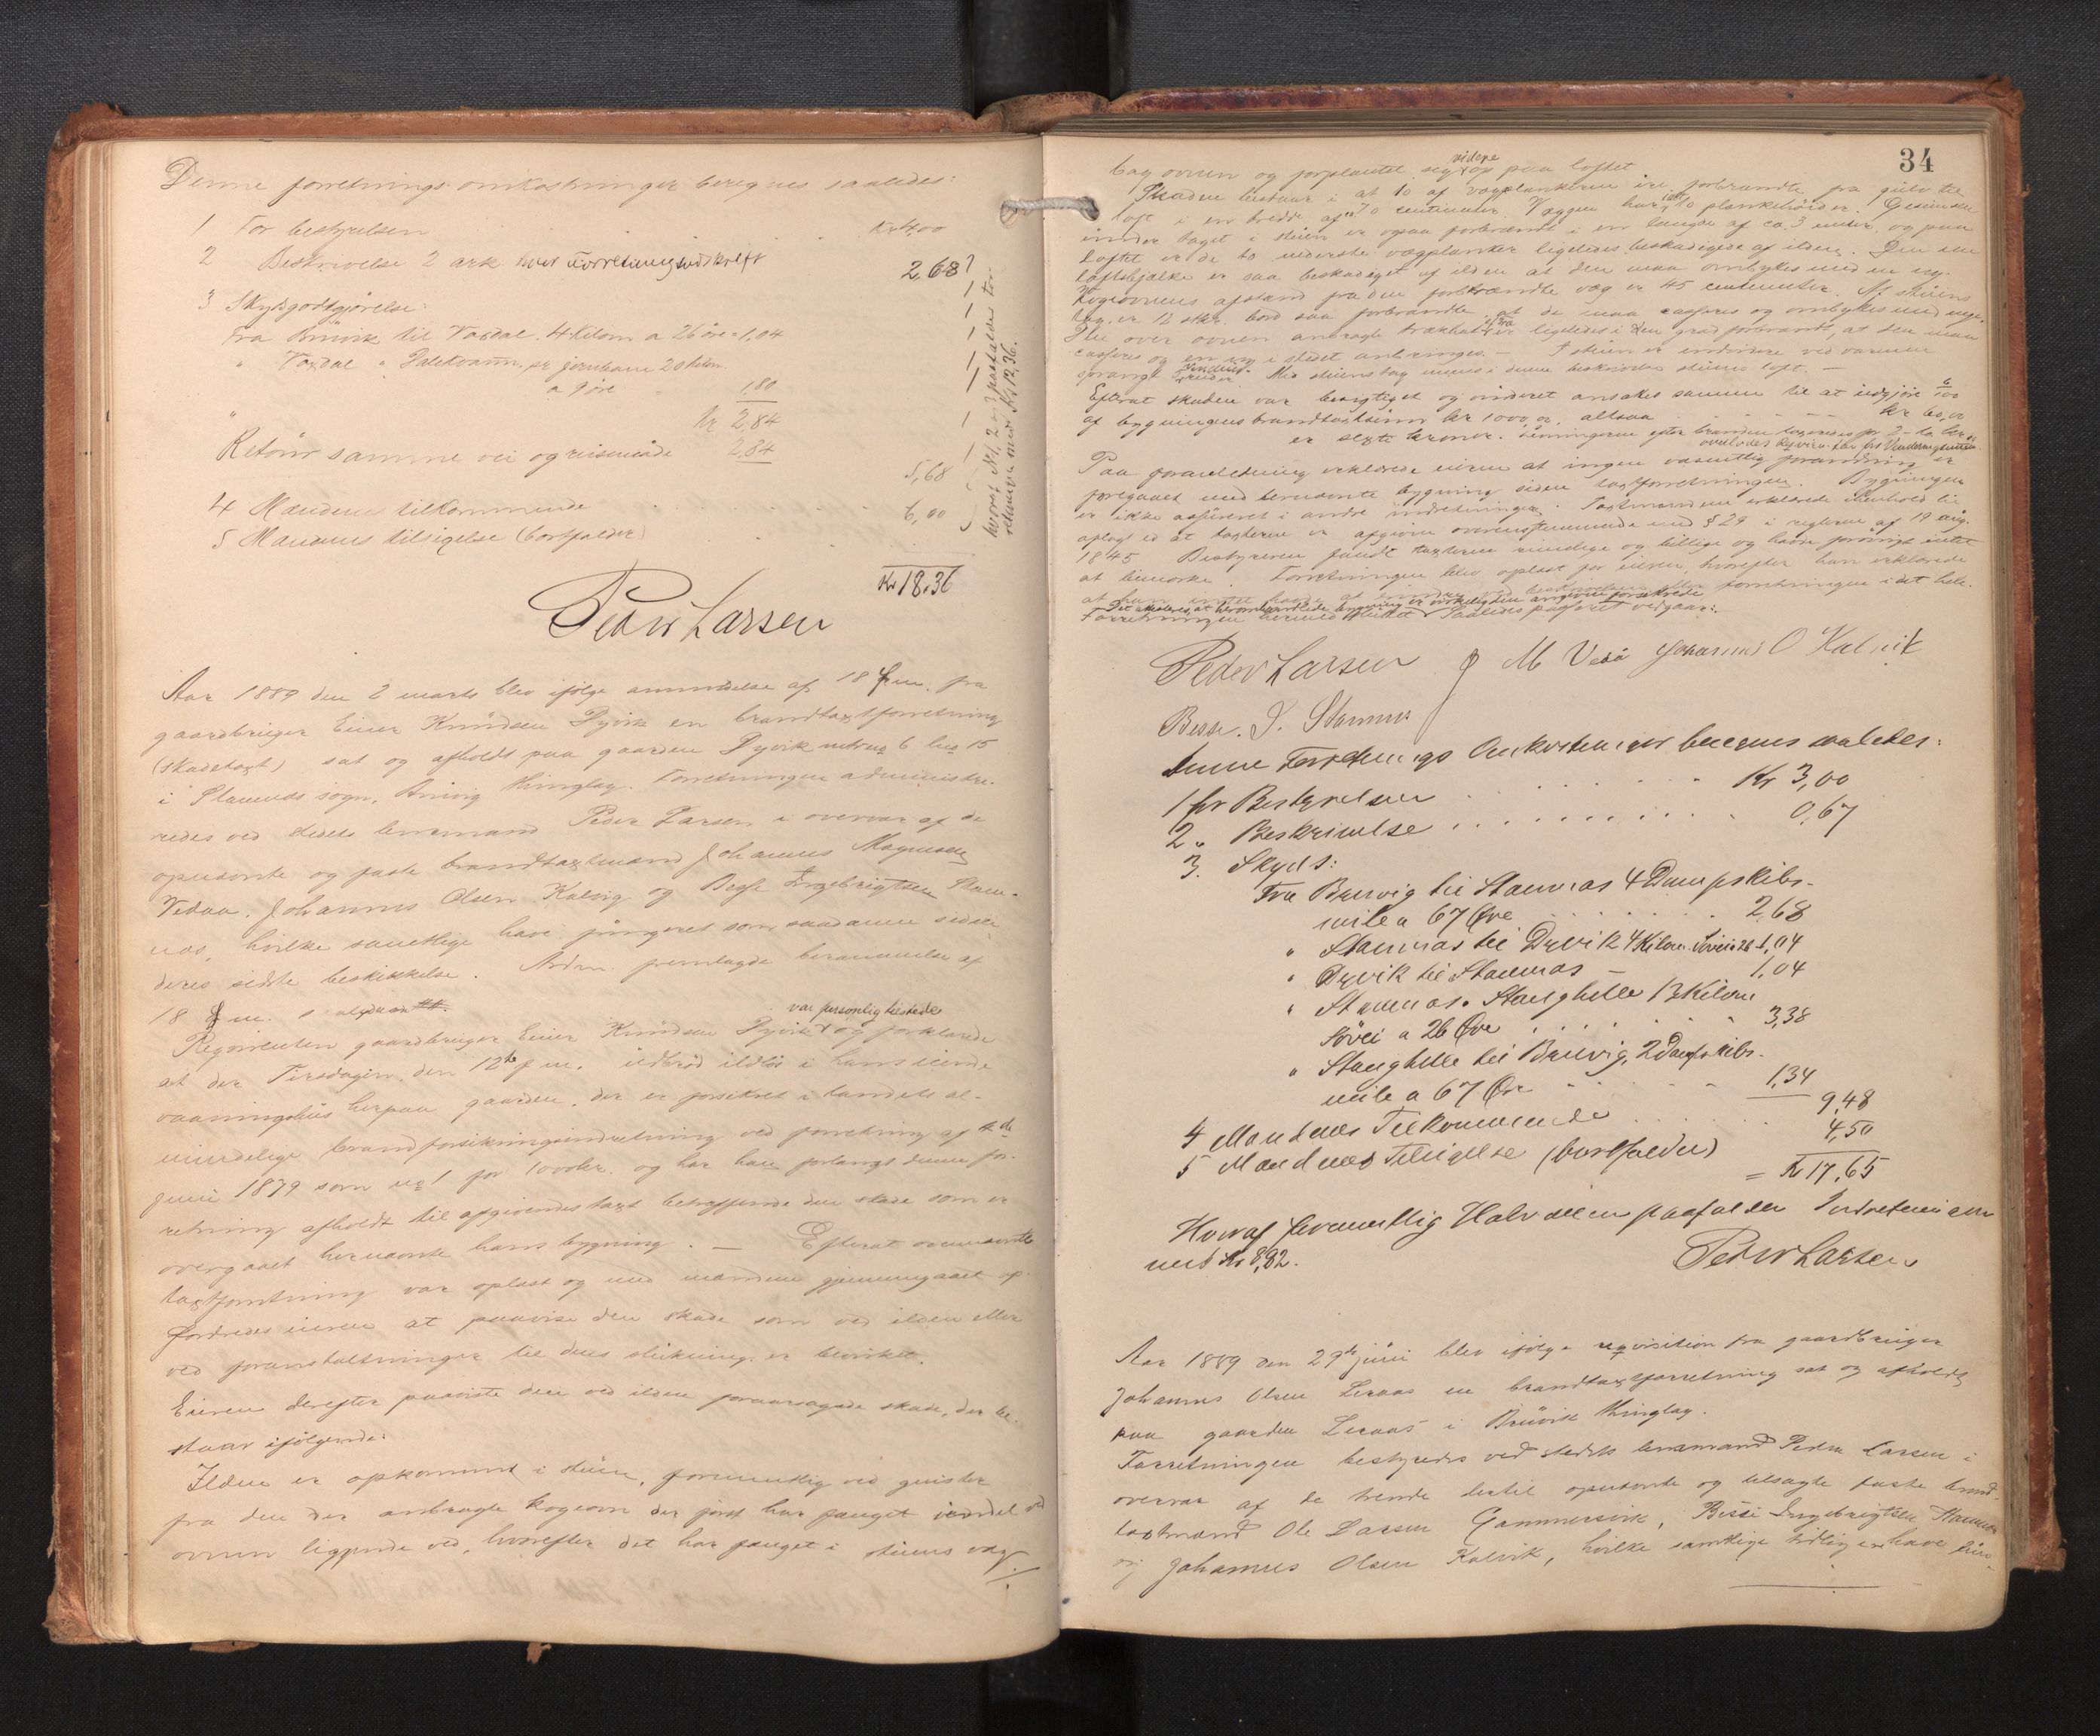 Denne forretnings omkostninger beregnes saaledes:
1 For bestyrelsen Kr 4,00
2 Beskrivelse 2 ark 2,68
3 Skydsgodtgjørelse:
Fra Brüvik til Vaxdal. 4 kilom a 26 øre = 1,04
" Vaxdal " Dalekvam pr jernbane 20 kilom.
a 9 øre 1,80
" kr 2,84
Retour samme vei og reisemåde 2,84
5,68
4 Mændenes tilkommende 6,00
5 Mændenes tilsigelse (bortfalder)
hvoraf No 1, 2 og 3 paafalder for-
retningen med Kr 12,36.
Kr 18,36
Peder Larsen
Aar 1889 den 2 marts blev ifølge anmodelse af 18 f. m. fra
gaardbruger Einar Knudsen Dyvik en brandtaxtforretning
(skadetaxt) sat og afholdt paa gaarden Dyvik matrnr 6 bno 15
i Stamnæs sogn, Brüvig thinglag. Forretningen administre-
redes ved stedets lensmand Peder Larsen i overvær af de
opnævnte og faste brandtaxtmænd Johannes Magnesen
Vedaa, Johannes Olsen Kalvig og Besse Ingebrigtsen Stam-
næs, hvilke samtlige have fungeret som saadanne siden
deres sidste beskikkelse. Adm. fremlagde berammelse af
18 f. m.
var personlig tilstede
Rqvirenten gaardbruger Einar Knudsen Dyvik og forklarede
at der Tirsdagen, den 12te f. m. udbrød ildløs i hans eiende
vaaningshus herpaa gaarden, der er forsikret i landets al-
mindelige brandforsikringsindretning ved forretning af 4de
juni 1879 som no 1 for 1000 kr. og har han forlangt denne for-
retning afholdt til afgivendes taxt betræffende den skade som er
overgaaet hernævnte hans bygning. — Efterat ovennævnte
taxtforretning var oplæst og med mændene gjennemgaaet op-
fordredes eieren at paavise den skade som ved ilden eller
ved foranstaltninger til dens slukning er bevirket.
Eieren derefter paaviste den ved ilden foraarsagede skade, der be-
staar i følgende:
Ilden er opkommet i stuen, formentlig ved gnister
fra den der anbragte kogeovn der først har fænget i endel ved
ovnen liggende ved, hvorefter det har fænget i stuens væg
34
bag ovnen og forplantet seg videre op paa loftet
Skaden bestaar i at 10 af vægplankerne ere forbrændte fra gulv til
loft i en bredde af 70 centimeter. Væggen har 10 plankehøider. Gesimsen
under taget i stuen er ogsaa forbrændt i en længde af ca. 3 meter og paa
loftet er de to nederste vægplanker ligeledes beskadigede af ilden. Den ene
loftsbjælke er saa beskadiget af ilden at den maa ombyttes med en ny.
Kogeovnens afstand fra den forbrændte væg er 45 centimeter. Af stuens
tag er 12 stkr. bord saa forbrændte at de maa casseres og ombyttes med nye.
Den over ovnen anbragte ligeledes i den grad forbrændt, at den maa
casseres og en ny i stedet anbringes. — I stuen er endvidere ved varmen
sprængt ruder. Med stuens tag menes i denne beskrivelse stuens loft. —
Efterat skaden var besigtiget og vurderet ansattes samme til at udgjøre 6/100
af bygningens brandtaxtsum kr 1000,00, altsaa kr 60,00
er sexti kroner.
Paa foranledning erklærede eieren at ingen væsentlig forandring er
foregaaet med bemeldte bygning siden taxtforretningen. Bygningen
er ikke assureret i andre indretninger. Taxtmændene erklærede i henhold til
aflagt ed at taxterne er afgivne overensstemmende med § 29 i reglerne af 19 aug.
1845 Bestyreren fandt taxterne rimelige og billige og havde forøvrigt intet
at bemærke. Forretningen blev oplæst for eieren, hvorefter han erklærede
at han intet havde at erindre ved beskrivelsen eller forretningen i det hele.
Det attesteres, at heromhandlede bygning er virkelig den angivne forsikrede
Forretningen hermed sluttet Saaledes passeret vedgaar:
Peder Larsen J M Vedå Johannes O Kalvik
Besse. I. Stamnes
Denne Forretnings Omkostninger beregnes saaledes:
1 for Bestyrelsen Kr 3,00
2 " Beskrivelse 0,67
3. Skyds:
Fra Bruvig til Stamnæs 4 Dampskibs-
mile a 67 Øre 2,68
" Stamnæs til Dyvik 4 Kilom. Søvei a 26 1,04
" Dyvik til Stamnæs — 1,04
" Stamnæs " Stanghelle 13 Kilom
søvei a 26 Øre 3,38
" Stanghelle til Bruvig, 2 Dampskibs-
mile a 67 Øre 1,34
9,48
4 Mændenes Tilkommende 4,50
5 Mændenes Tilsigelse (bortfalder)
= Kr 17,65
Hvoraf formentlig Halvdelen paafalder Indretningen
med Kr 8,82.
Peder Larsen
Aar 1889 den 29de juni blev ifølge reqvisition fra gaardbruger
Johannes Olsen Leraas en brandtaxtforretning sat og afholdt
paa gaarden Leraas i Brüvik thinglag.
Forretningen bestyredes ved stedets lensmand Peder Larsen i
overvær af de trende dertil opnævnte og tilsagte faste brand-
taxtmænd Ole Larsen Gammersvik, Besse Ingebrigtsen Stamnæs
og Johannes Olsen Kalvik, hvilke samtlige tidligere have fun-